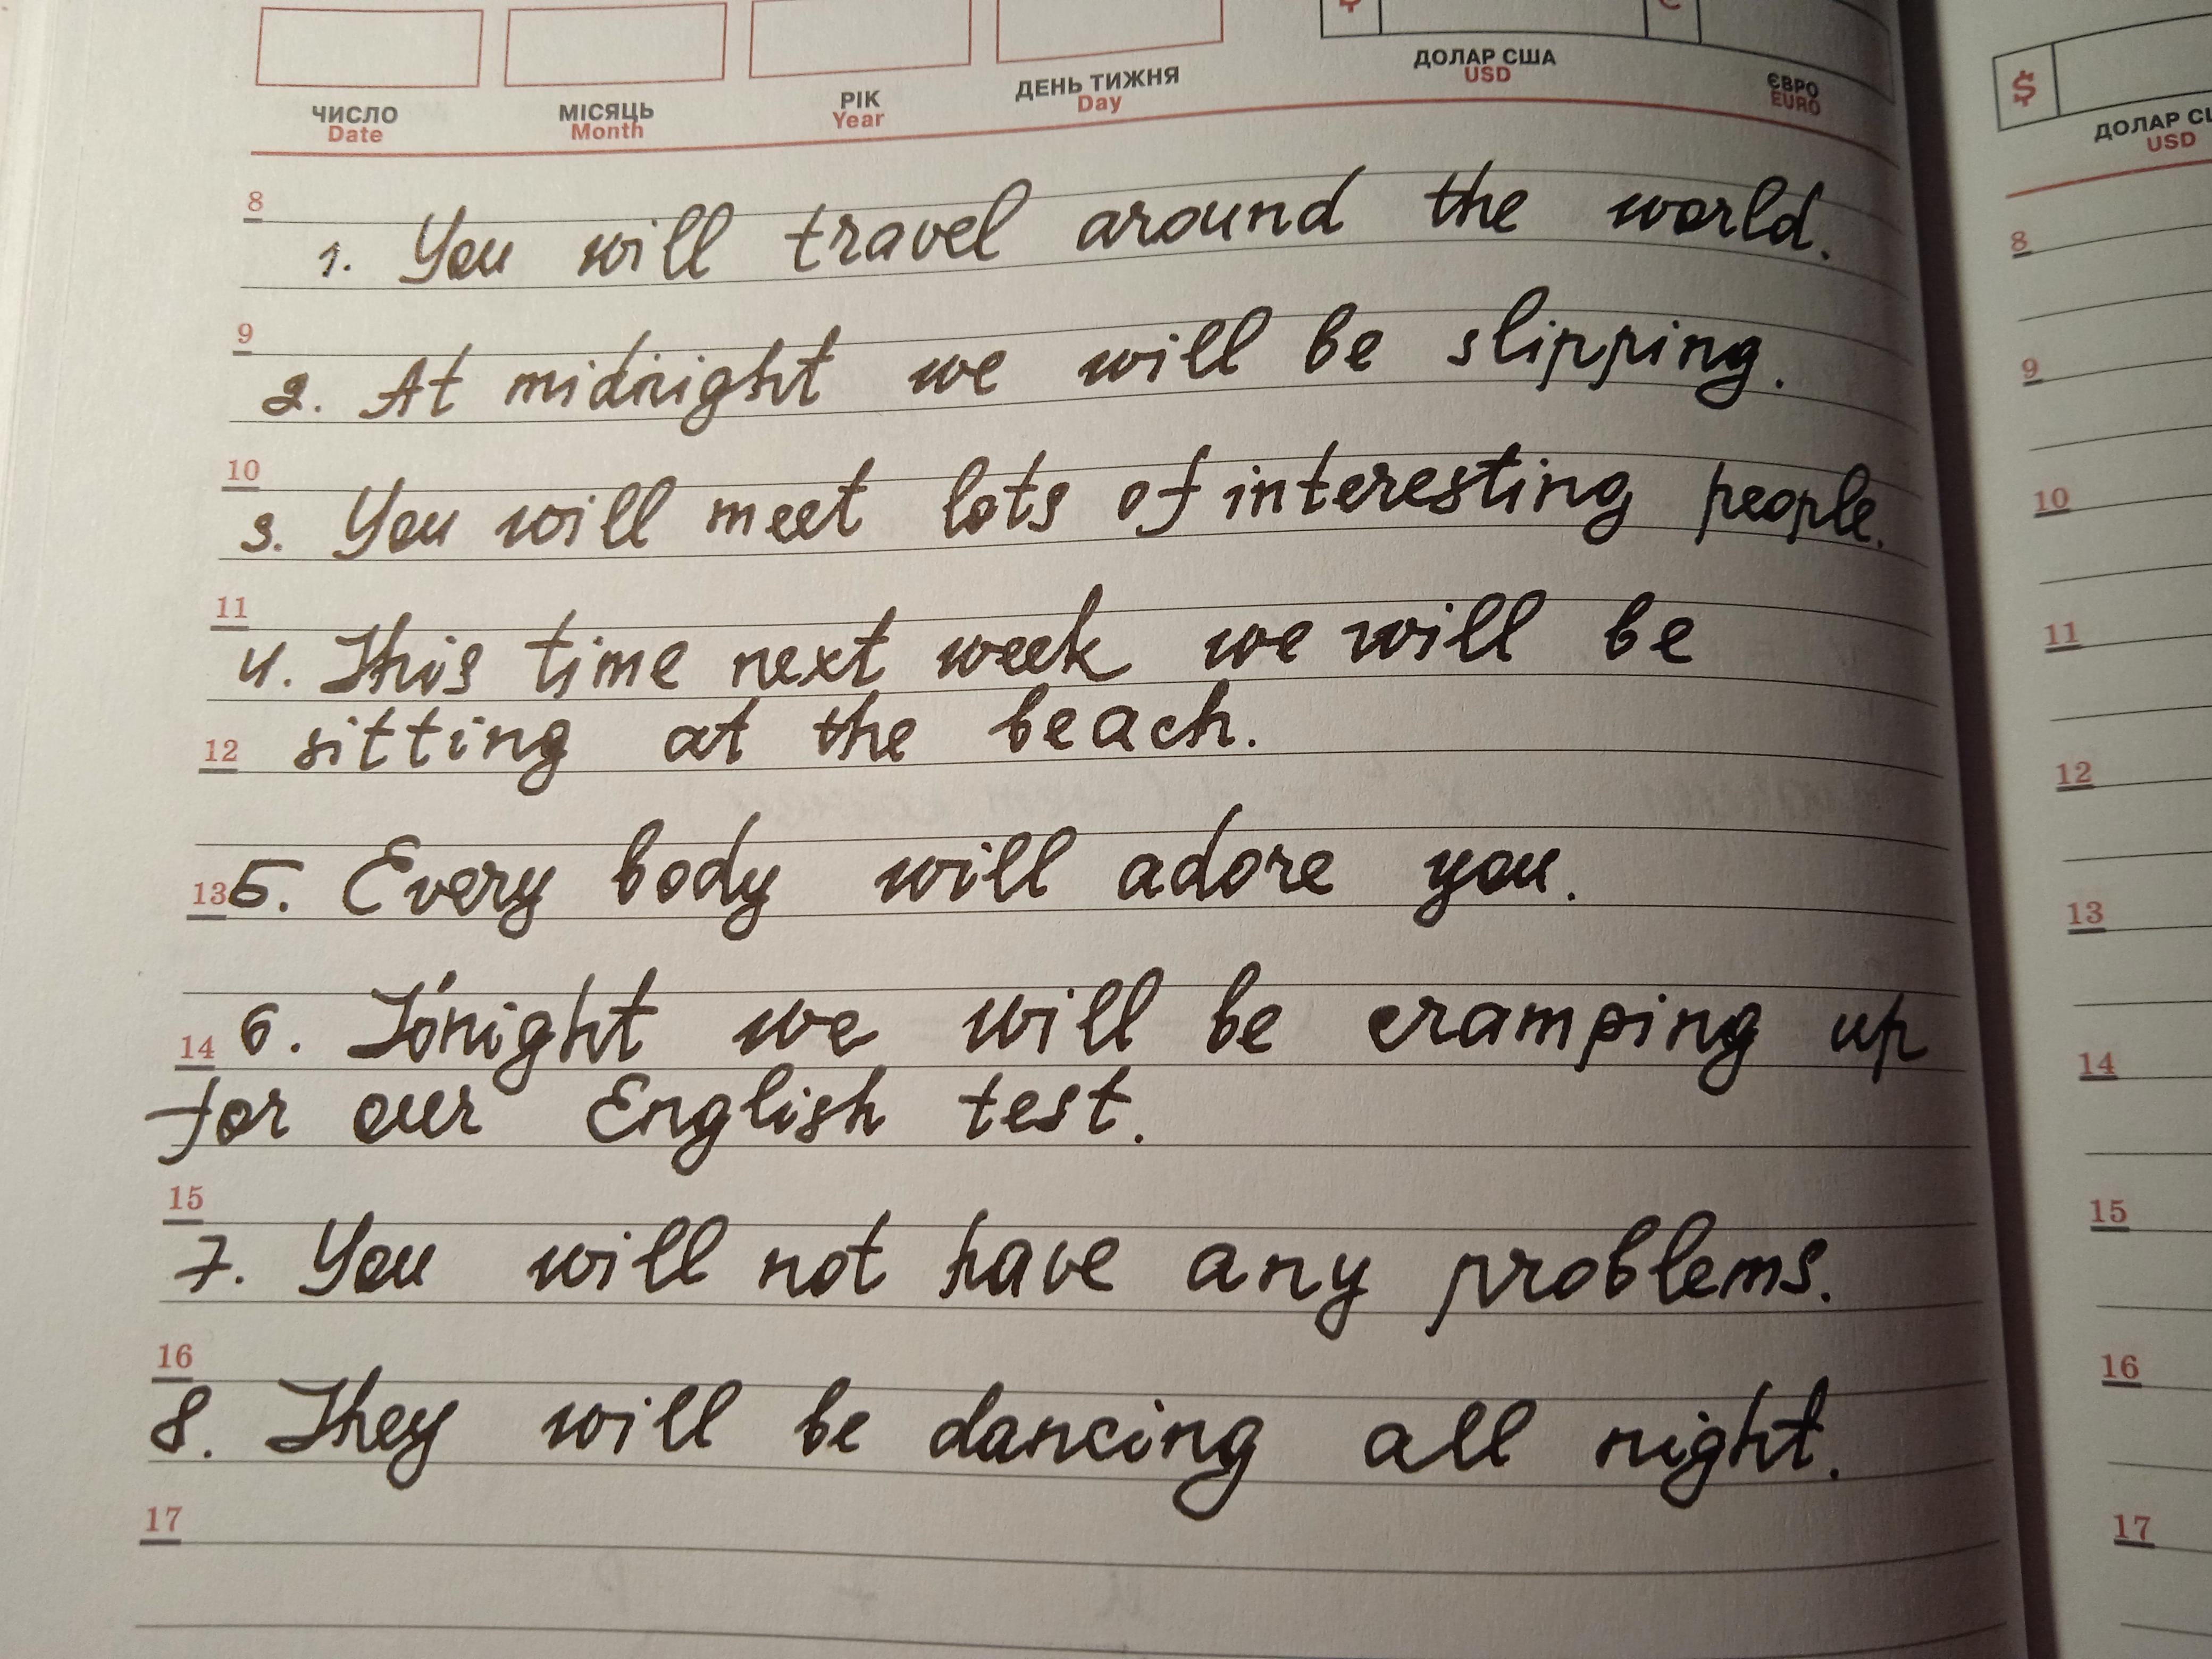 ЧИСЛО МІСЯЦЬ РІК ДЕНЬ ТИЖНЯ ДОЛАР США ЄВРО
Date Month Year Day USD EURO
8
1. You will travel around the world.
9
2. At midnight we will be slipping.
10
3. You will meet lots of interesting people.
11
4. This time next week we will be
12 sitting at the beach.
13 5. Every body will adore you.
14 6. Tonight we will be cramping up
for our English test.
15
7. You will not have any problems.
16
8. They will be dancing all night.
17
$
ДОЛАР
USD
8
9
10
11
12
13
14
15
16
17